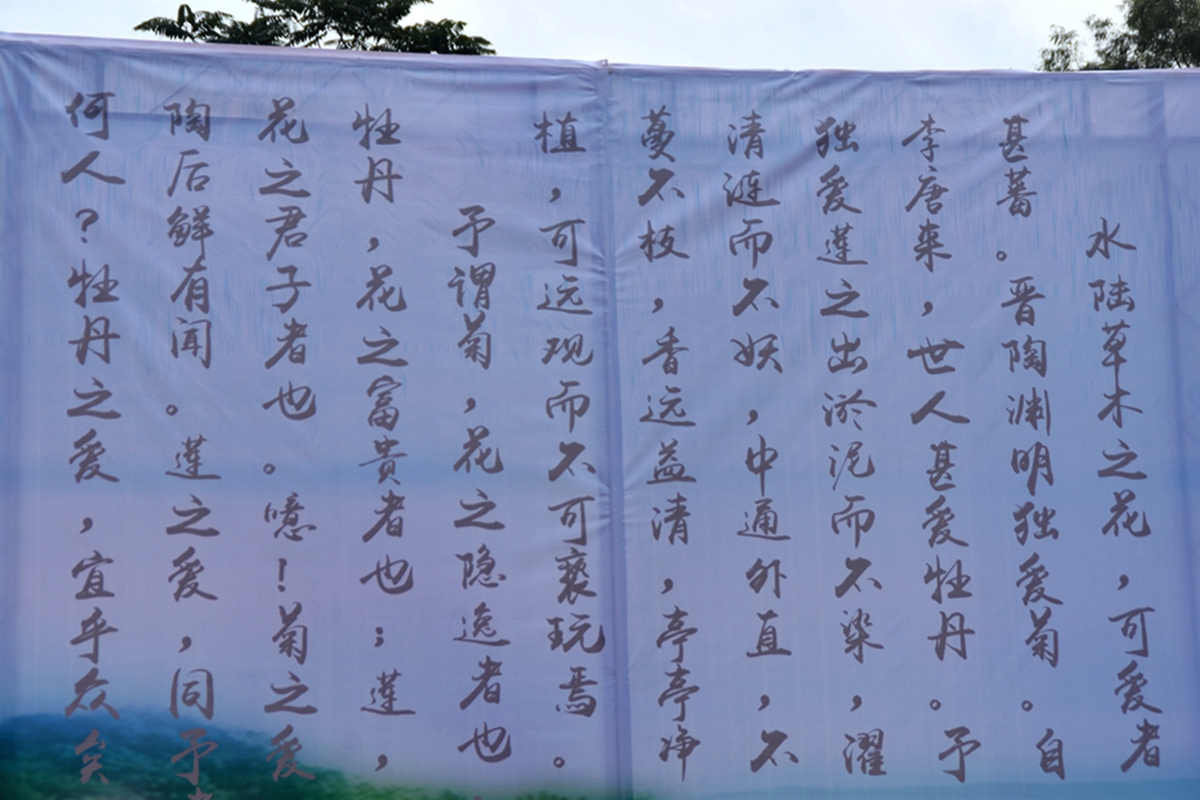 水陆草木之花，可爱者
甚蕃。晋陶渊明独爱菊。自
李唐来，世人甚爱牡丹。予
独爱莲之出淤泥而不染，濯
清涟而不妖，中通外直，不
蔓不枝，香远益清，亭亭净
植，可远现而不可亵玩焉。
予谓菊，花之隐逸者也
牡丹，花之富贵者也；莲，
花之君子者也。噫！菊之爱
陶后鲜有闻。莲之爱，同予
何人？牡丹之爱，宜乎众矣